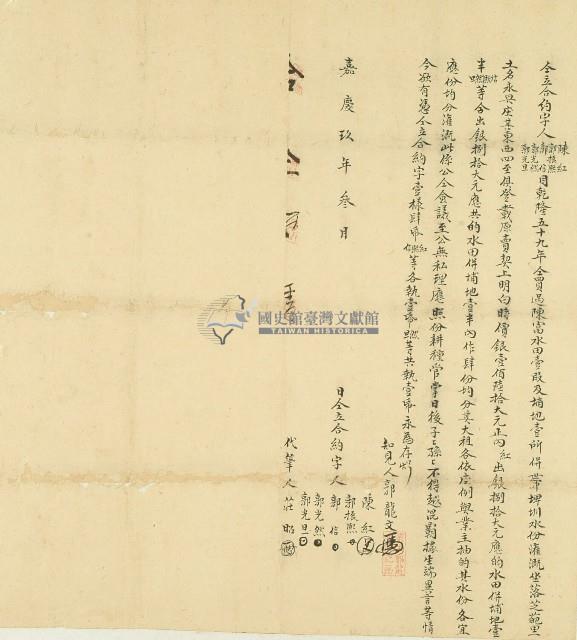 仝立合約字人陳紅郭核熙郭信郭光然郭光旦因乾隆五十九年仝買過陳富水田壹段及埔地壹所併帶埤圳水份灌溉坐落芝葩里
土名永興庄其東西四至俱登載原賣契上明白時價銀壹佰陸拾大元正內紅出銀捌拾大元應的水田併埔地壹
半 等合出銀捌拾大元應共的水田併埔地壹半內作肆份均分其大租各依定例與業主抽的其水份各宜
應份均分灌溉此係公仝會議至公無私理應照份耕種管掌日後子々孫々不得越混 據生端異言等情
今欲有憑仝立合約字壹樣肆帋紅 等各執壹帋 等共執壹帋永為存炤
知見人郭龍文
嘉慶玖年叁月 日仝立合約字人
陳紅
郭核熙
郭信
郭光然
郭光旦
代筆人莊
國史館臺灣文獻館
TAIWAN HISTORICA